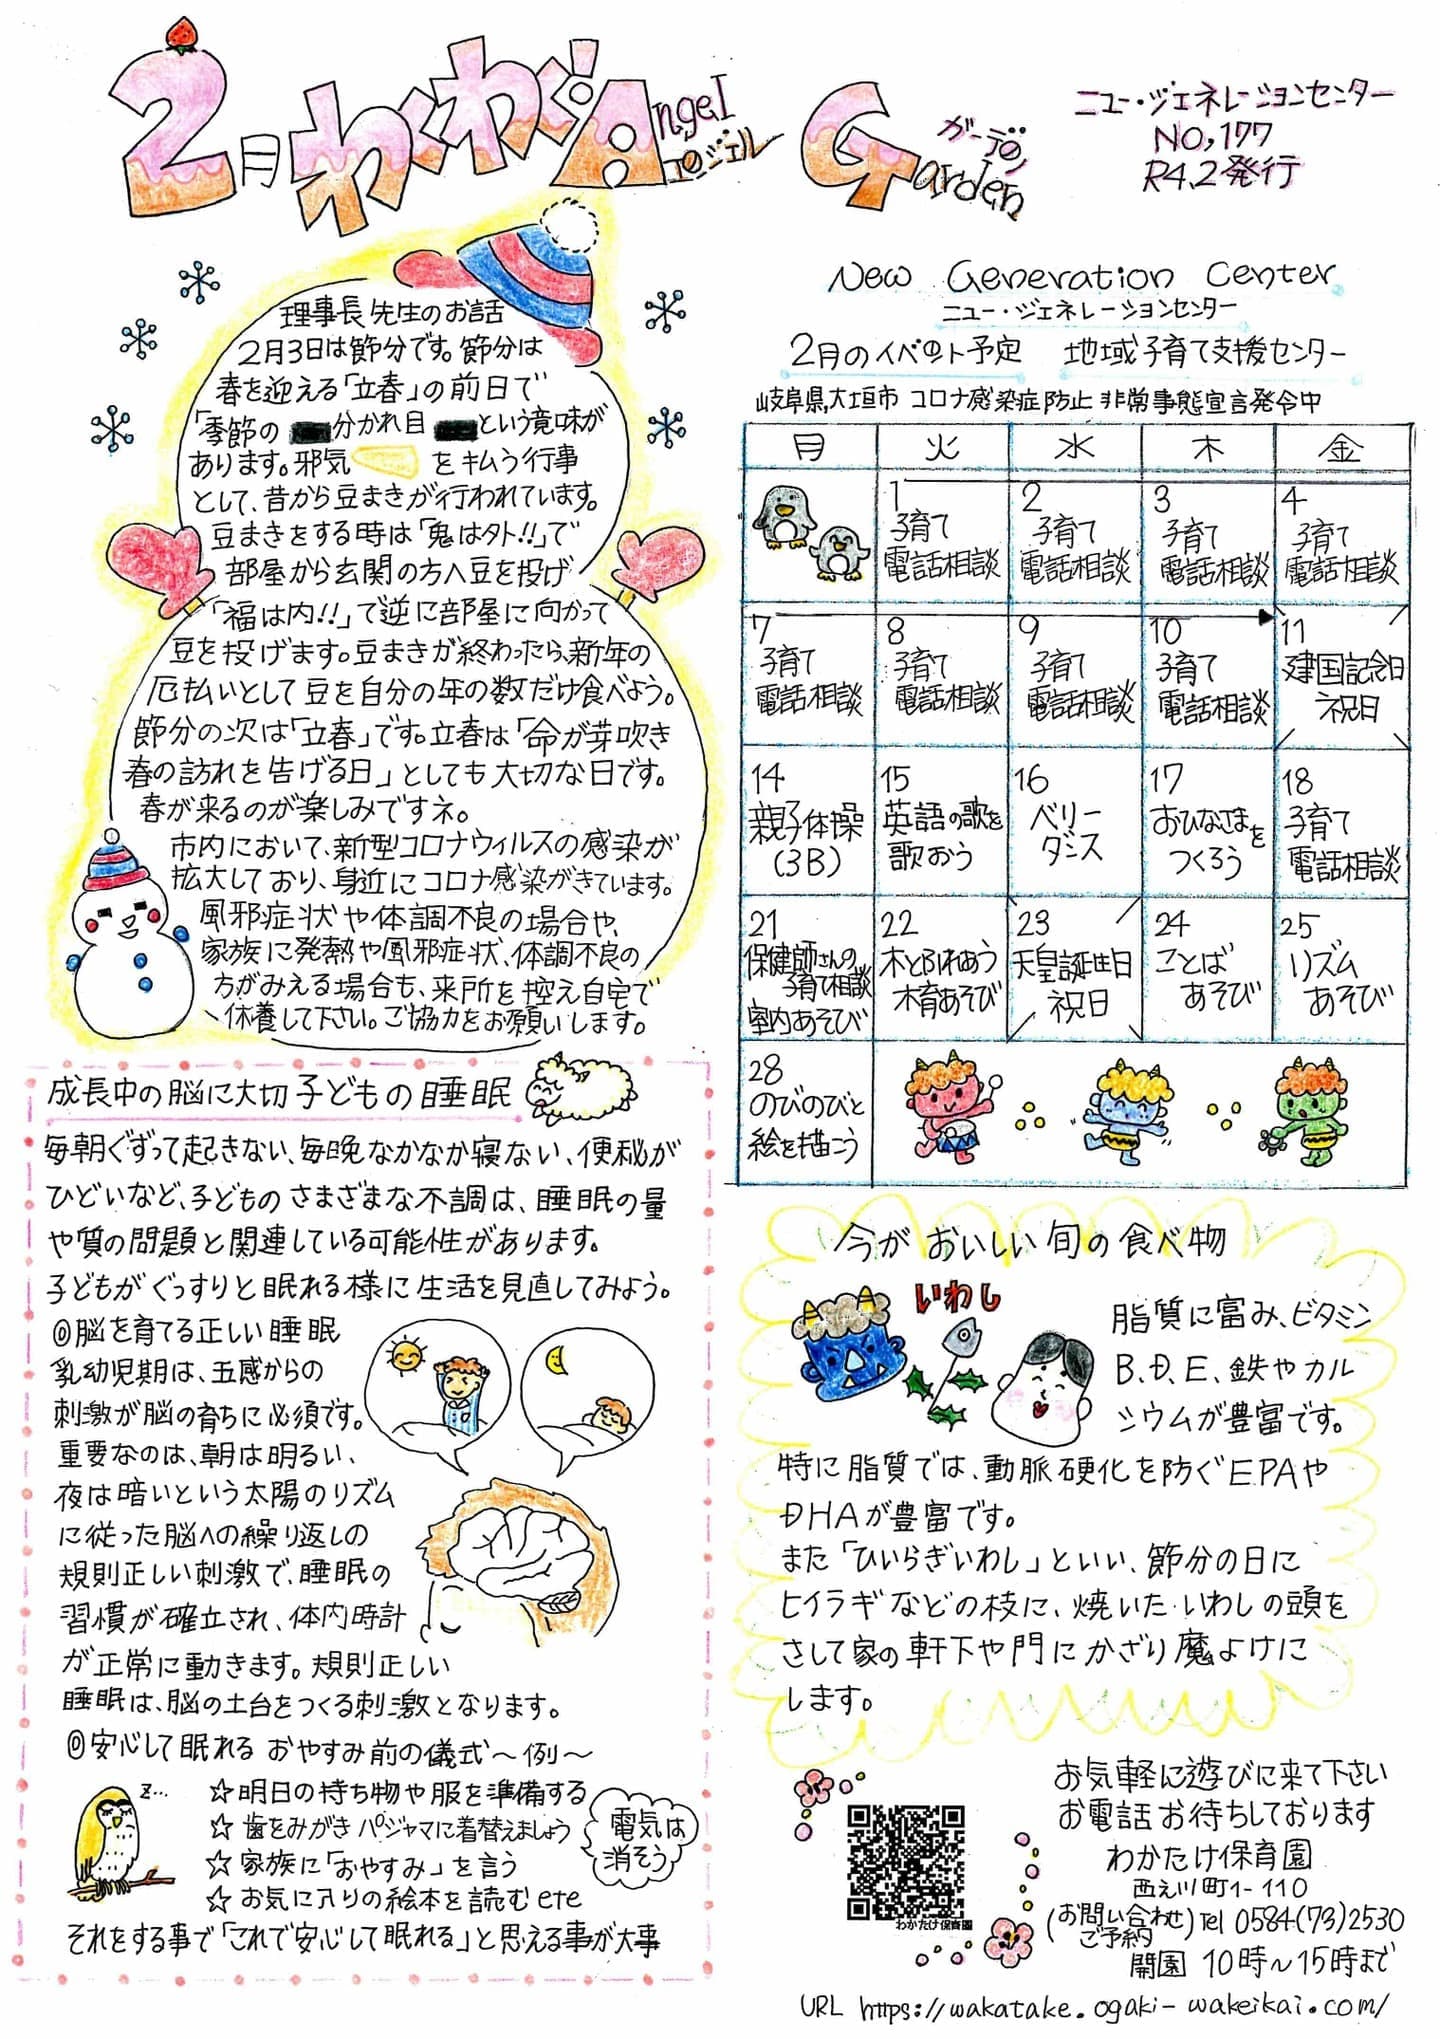 2月わくわく!Angel Garden
エンジェル ガーデン
ニュー・ジェネレーションセンター
NO,177
R4.2発行
理事長先生のお話
2月3日は節分です。節分は
春を迎える「立春」の前日で
「季節の 分かれ目 という意味が
あります。邪気 を払う行事
として、昔から豆まきが行われています。
豆まきをする時は「鬼は外!!」で
部屋から玄関の方へ豆を投げ
「福は内!!」で逆に部屋に向かって
豆を投げます。豆まきが終わったら、新年の
厄払いとして豆を自分の年の数だけ食べよう。
節分の次は「立春」です。立春は「命が芽吹き
春の訪れを告げる日」としても大切な日です。
春が来るのが楽しみですネ。
市内において、新型コロナウィルスの感染が
拡大しており、身近にコロナ感染がきています。
風邪症状や体調不良の場合や、
家族に発熱や風邪症状、体調不良の
方がみえる場合も、来所を控え自宅で
休養して下さい。ご協力をお願いします。
New Generation Center
ニュー・ジェネレーションセンター
2月のイベント予定 地域子育て支援センター
岐阜県,大垣市 コロナ感染症防止 非常事態宣言発令中
月 火 水 木 金
1 2 3 4
子育て 子育て 子育て 子育て
電話相談 電話相談 電話相談 電話相談
7 8 9 10 11
子育て 子育て 子育て 子育て 建国記念日
電話相談 電話相談 電話相談 電話相談 祝日
14 15 16 17 18
親子体操 英語の歌を ベリー おひなさまを 子育て
(3B) 歌おう ダンス つくろう 電話相談
21 22 23 24 25
保健師さんの 木とふれあう 天皇誕生日 ことば リズム
子育て相談 木育あそび 祝日 あそび あそび
室内あそび
28
のびのびと
絵を描こう
成長中の脳に大切 子どもの睡眠
毎朝ぐずって起きない、毎晩なかなか寝ない、便秘が
ひどいなど、子どものさまざまな不調は、睡眠の量
や質の問題と関連している可能性があります。
子どもがぐっすりと眠れる様に生活を見直してみよう。
◎脳を育てる正しい睡眠
乳幼児期は、五感からの
刺激が脳の育ちに必須です。
重要なのは、朝は明るい、
夜は暗いという太陽のリズム
に従った脳への繰り返しの
規則正しい刺激で、睡眠の
習慣が確立され、体内時計
が正常に動きます。規則正しい
睡眠は、脳の土台をつくる刺激となります。
◎安心して眠れる おやすみ前の儀式〜例〜
z...
☆明日の持ち物や服を準備する
☆歯をみがきパジャマに着替えましょう
☆家族に「おやすみ」を言う
☆お気に入りの絵本を読むetc
電気は
消そう
それをする事で「これで安心して眠れる」と思える事が大事
今がおいしい旬の食べ物
いわし
脂質に富み、ビタミン
B、D、E、鉄やカル
シウムが豊富です。
特に脂質では、動脈硬化を防ぐEPAや
DHAが豊富です。
また「ひいらぎいわし」といい、節分の日に
ヒイラギなどの枝に、焼いたいわしの頭を
さして家の軒下や門にかざり魔よけに
します。
お気軽に遊びに来て下さい
お電話お待ちしております
わかたけ保育園
西之川町1-110
(お問い合わせ ご予約) Tel 0584(73)2530
開園 10時〜15時まで
わかたけ保育園
URL https://wakatake.ogaki-wakeikai.com/